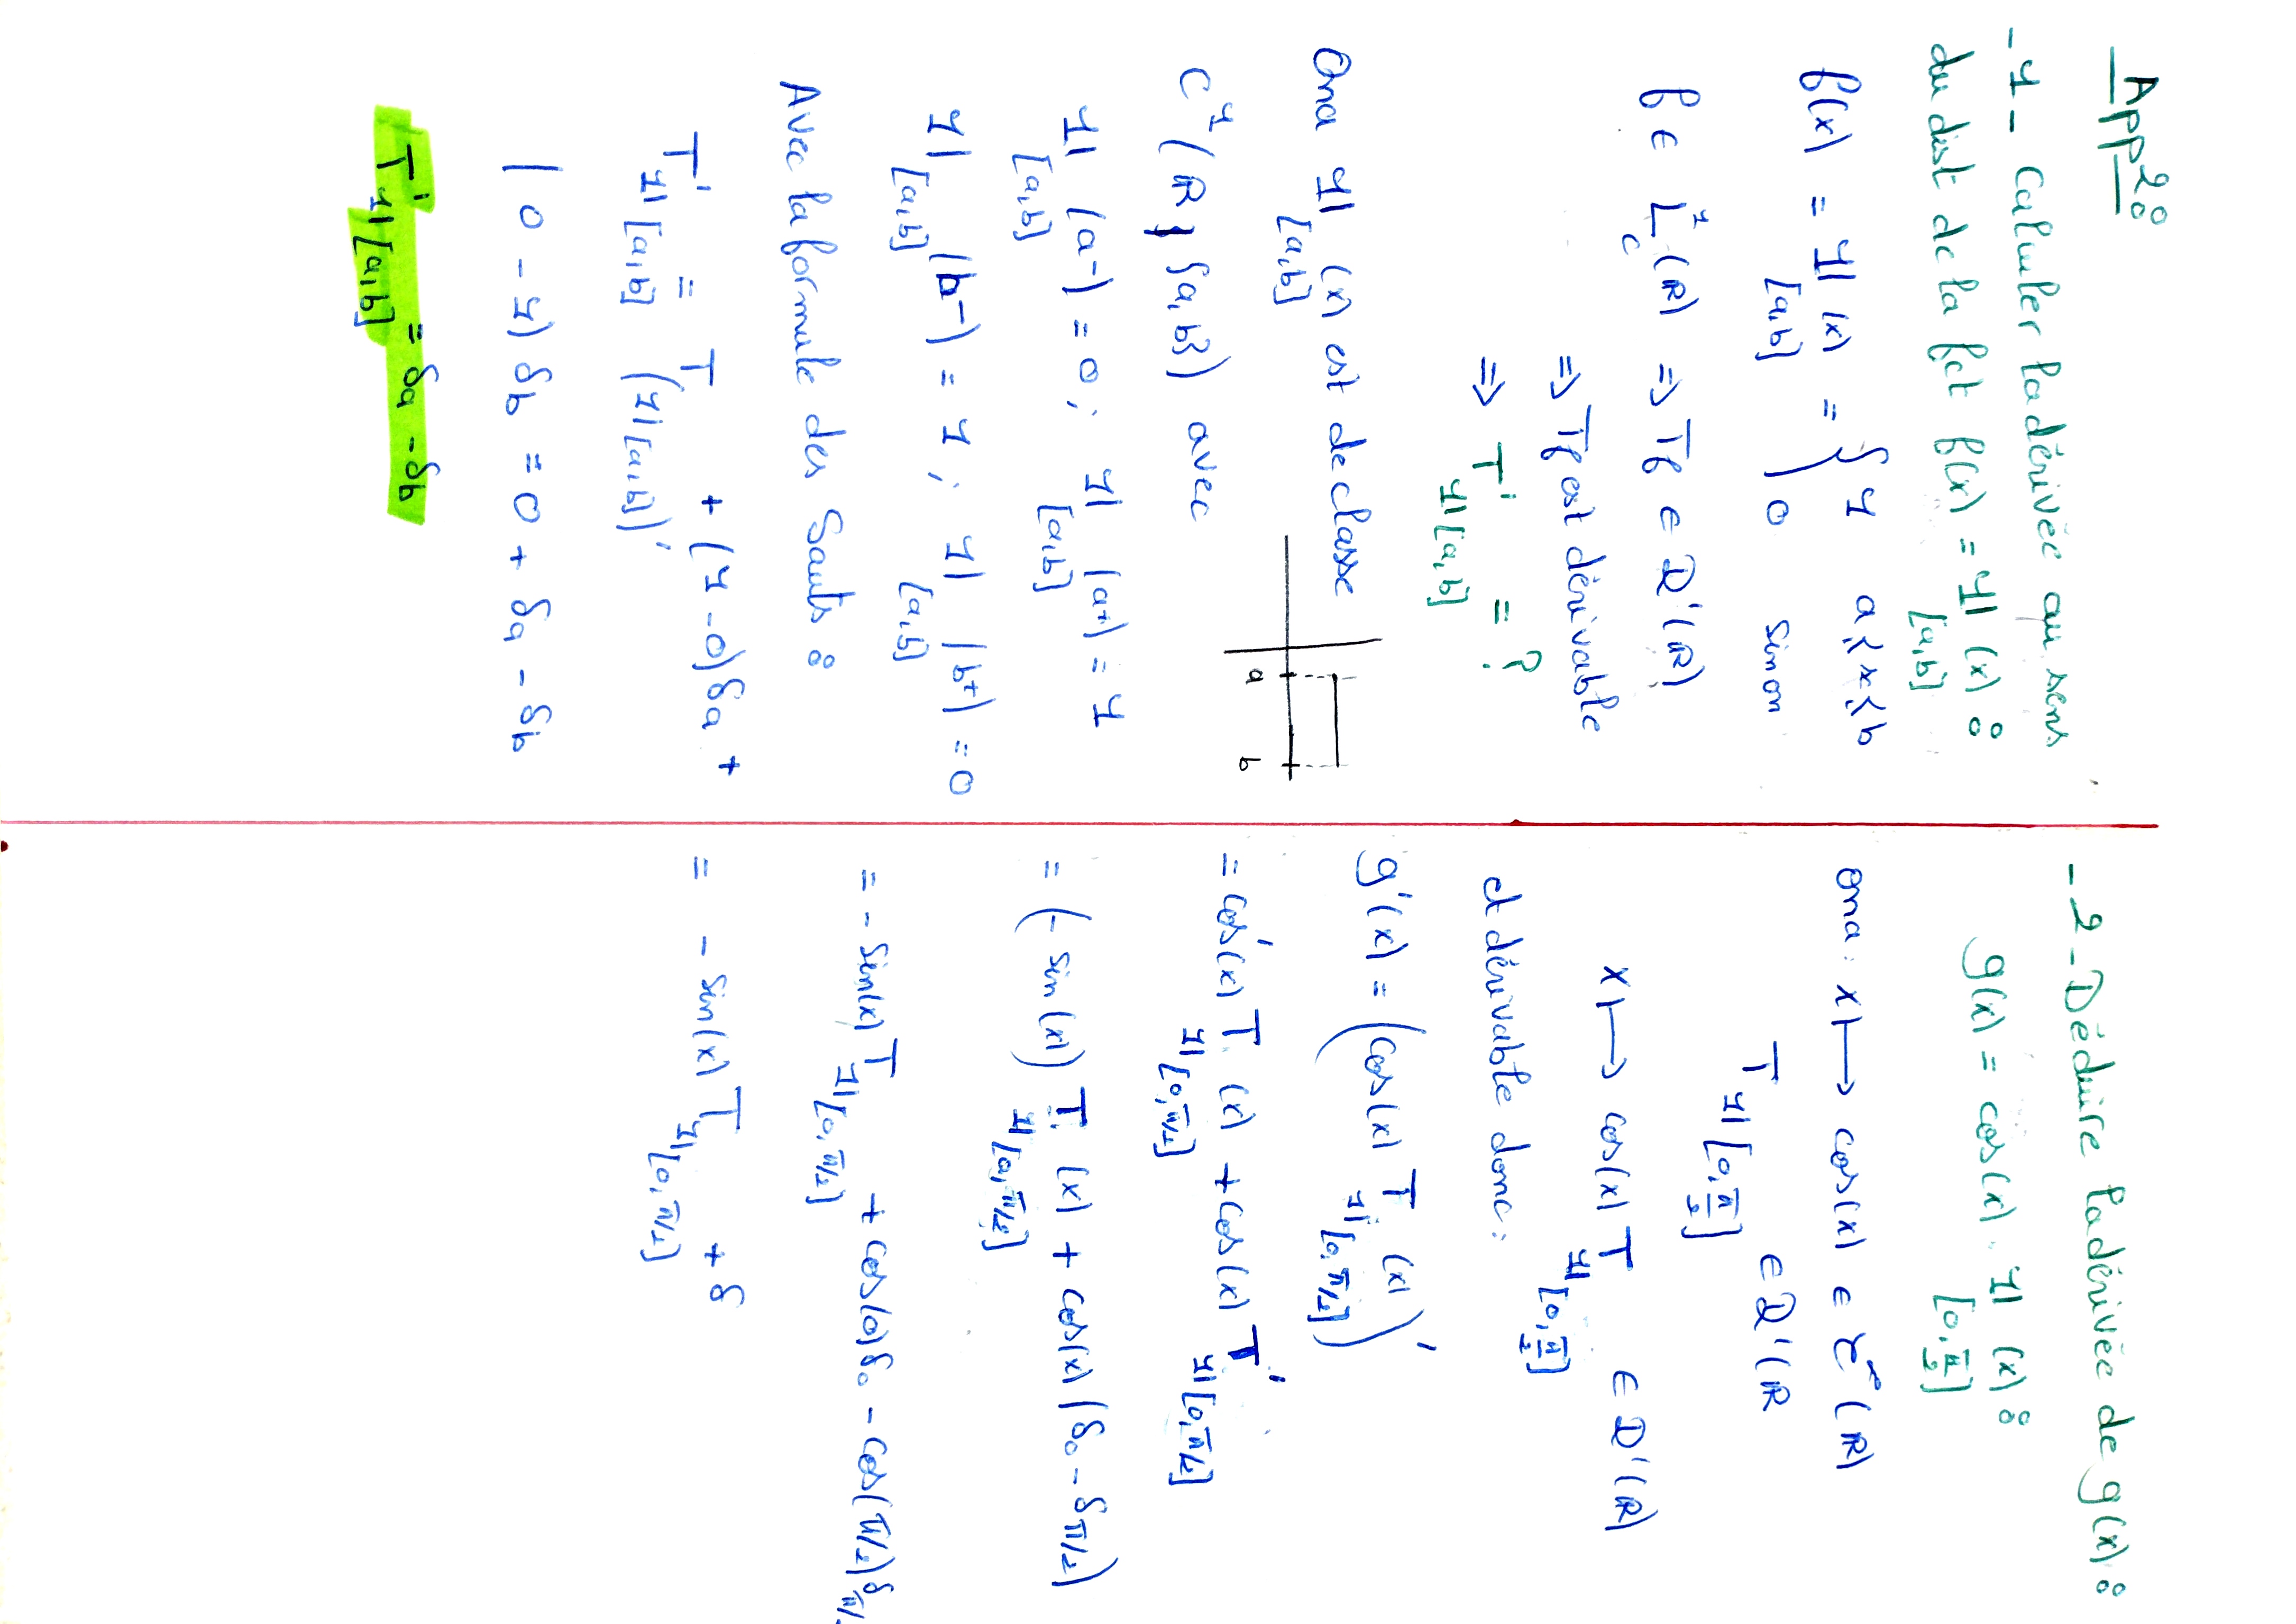 App 2:
-1- Calculer la dérivée au sens
du dist de la fct f(x) = 1l[a,b] (x) :
f(x) = 1l[a,b] (x) = { 1 a≤x≤b
0 sinon
f ∈ L¹c (R) => Tf ∈ D'(R)
=> Tf est dérivable
=> T'1l[a,b] = ?
Ona 1l[a,b] (x) est de classe
C¹(R \ {a,b}) avec
a b
1l[a,b] (a-) = 0; 1l[a,b] (a+) = 1
1l[a,b] (b-) = 1; 1l[a,b] (b+) = 0
Avec la formule des Sauts :
T'1l[a,b] = T(1l[a,b])' + (1-0)δa +
(0-1) δb = 0 + δa - δb
T'1l[a,b] = δa - δb
-2- Déduire la dérivée de g(x) :
g(x) = cos(x) . 1l[0,π/2] (x) :
ona: x ⟼ cos(x) ∈ C∞(R)
T1l[0,π/2] ∈ D'(R
x ⟼ cos(x) T1l[0,π/2] ∈ D'(R)
et dérivable donc:
g'(x) = (cos(x) T1l[0,π/2] (x))'
= cos'(x) T1l[0,π/2] (x) + cos(x) T'1l[0,π/2]
= (-sin(x)) T1l[0,π/2] (x) + cos(x) (δ0 - δπ/2)
= -sin(x) T1l[0,π/2] + cos(0)δ0 - cos(π/2)δπ/2
= -sin(x) T1l[0,π/2] + δ